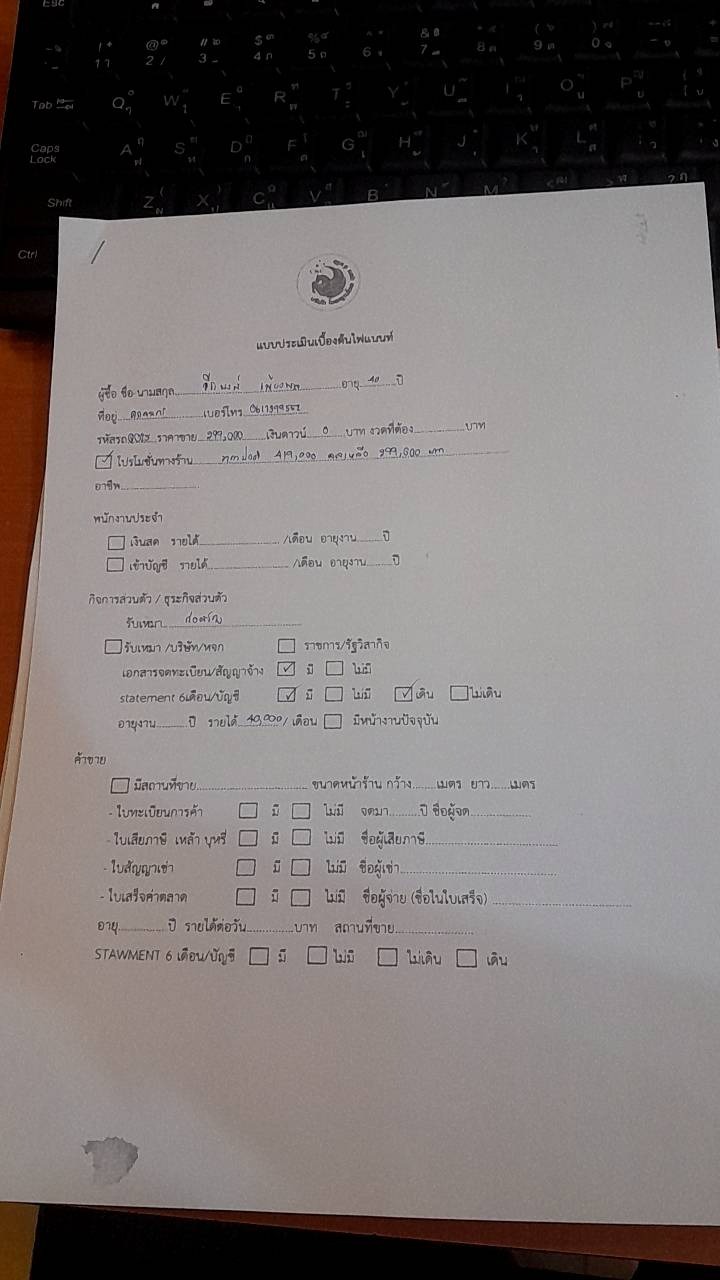 Esc
Tab Q W E R T Y U I O P
Caps Lock A S D F G H J K L
Shift Z X C V B N M
Ctrl
แบบประเมินเบื้องต้นไฟแนนท์
ผู้ซื้อ ชื่อ-นามสกุล อายุ 40 ปี
ที่อยู่ เบอร์โทร
รหัสรถ ราคาขาย 299,000 เงินดาวน์ 0 บาท งวดที่ต้อง บาท
โปรโมชั่นทางร้าน 419,000
อาชีพ
พนักงานประจำ
เงินสด รายได้ /เดือน อายุงาน ปี
เข้าบัญชี รายได้ /เดือน อายุงาน ปี
กิจการส่วนตัว / ธุระกิจส่วนตัว
รับเหมา ก่อสร้าง
รับเหมา /บริษัท/หจก ราชการ/รัฐวิสากิจ
เอกสารจดทะเบียน/สัญญาจ้าง มี ไม่มี
statement 6เดือน/บัญชี มี ไม่มี เดิน ไม่เดิน
อายุงาน ปี รายได้ 40,000 / เดือน มีหน้างานปัจจุบัน
ค้าขาย
มีสถานที่ขาย ขนาดหน้าร้าน กว้าง เมตร ยาว เมตร
- ใบทะเบียนการค้า มี ไม่มี จดมา ปี ชื่อผู้จด
- ใบเสียภาษี เหล้า บุหรี่ มี ไม่มี ชื่อผู้เสียภาษี
- ใบสัญญาเช่า มี ไม่มี ชื่อผู้เช่า
- ใบเสร็จค่าตลาด มี ไม่มี ชื่อผู้จ่าย (ชื่อในใบเสร็จ)
อายุ ปี รายได้ต่อวัน บาท สถานที่ขาย
STAWMENT 6 เดือน/บัญชี มี ไม่มี ไม่เดิน เดิน